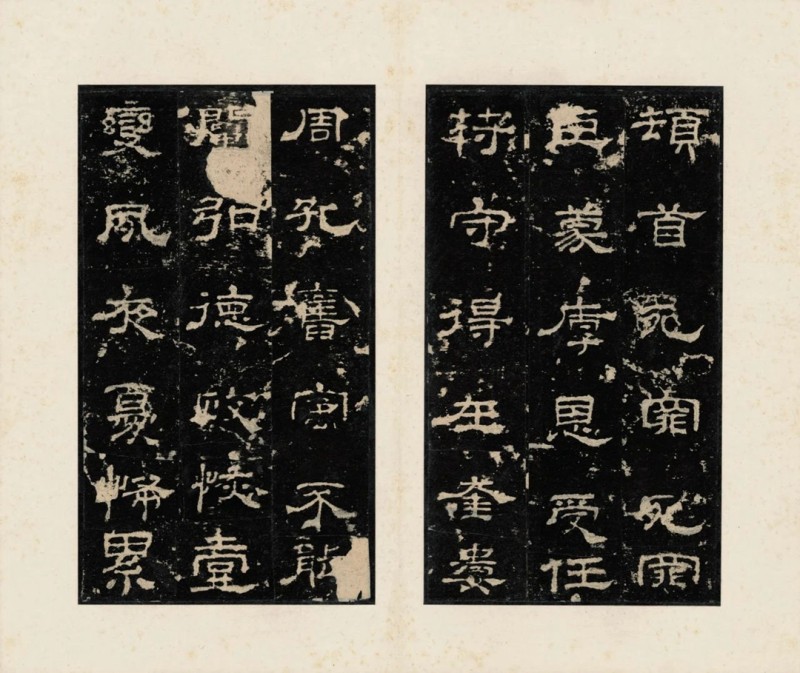 頓首死罪死罪
臣蒙厚恩受任
符守得在奎婁
周孔舊寓不能
闡弘德政恢壹
變夙夜憂怖累